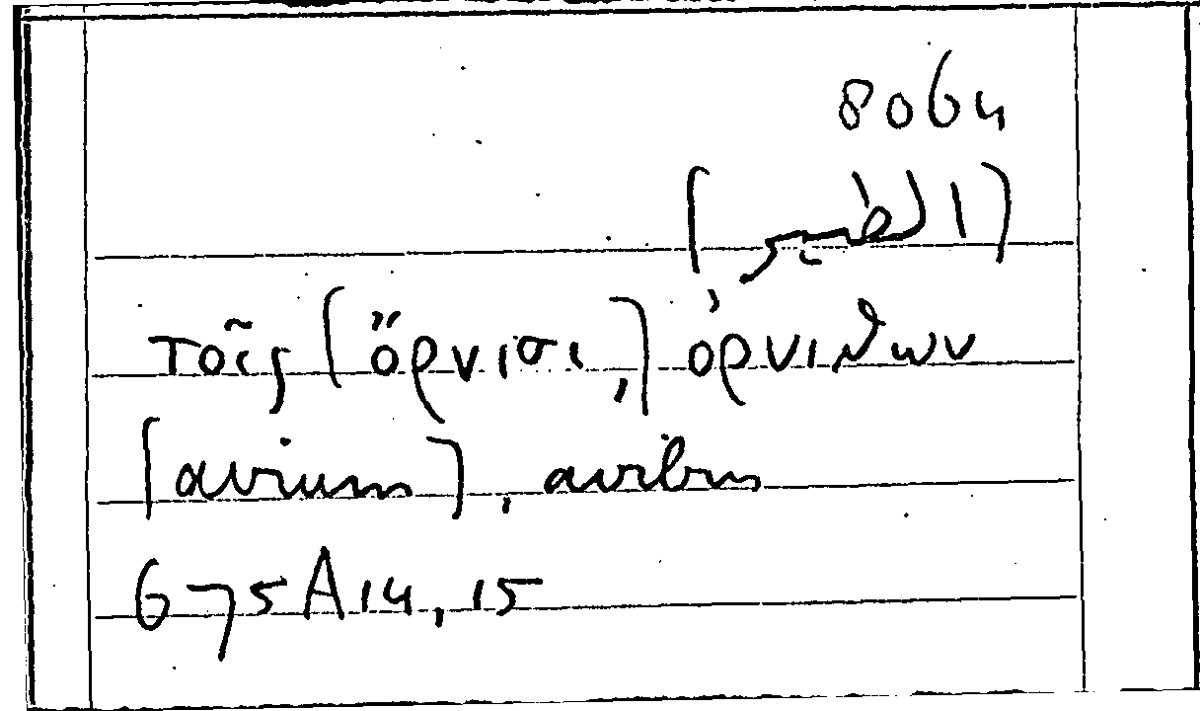 8064
[الطير]
τοῖς [ὄρνισι,] ὀρνίθων
[avium], avibus
675A14, 15